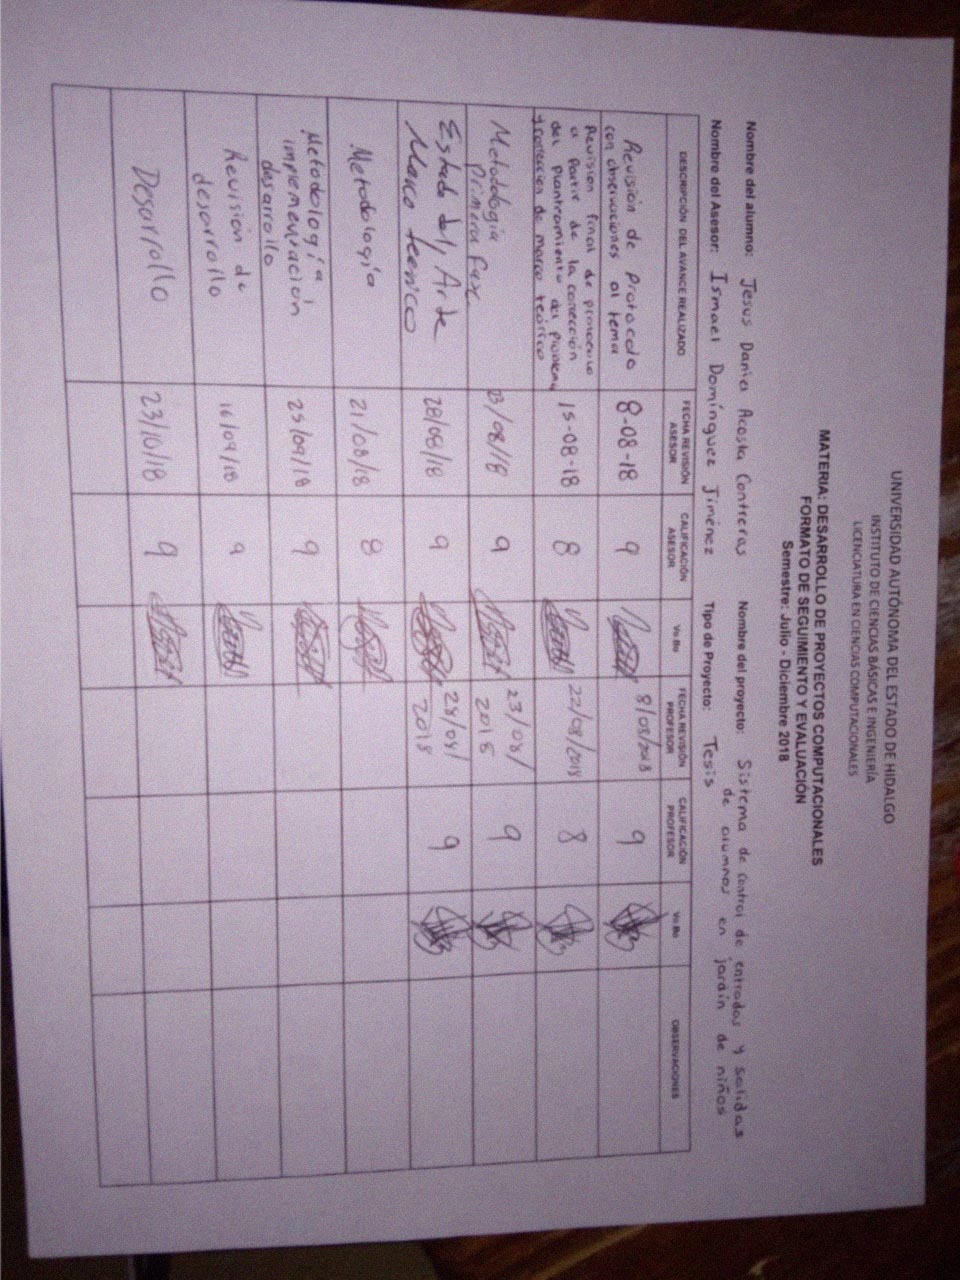 UNIVERSIDAD AUTÓNOMA DEL ESTADO DE HIDALGO
INSTITUTO DE CIENCIAS BÁSICAS E INGENIERÍA
LICENCIATURA EN CIENCIAS COMPUTACIONALES
MATERIA: DESARROLLO DE PROYECTOS COMPUTACIONALES
FORMATO DE SEGUIMIENTO Y EVALUACIÓN
Semestre: Julio - Diciembre 2018
Nombre del alumno: Jesus Daniel Acosta Contreras
Nombre del proyecto: Sistema de control de entradas y salidas
de alumnos en jardín de niños
Nombre del Asesor: Ismael Domínguez Jiménez
Tipo de Proyecto: Tesis
DESCRIPCIÓN DEL AVANCE REALIZADO
FECHA REVISIÓN
ASESOR
CALIFICACIÓN
ASESOR
Vo.Bo
FECHA REVISIÓN
PROFESOR
CALIFICACIÓN
PROFESOR
Vo.Bo
OBSERVACIONES
Revisión de Protocolo
con observaciones al tema
8-08-18
9
8/08/2018
9
Revisión final de protocolo
a partir de la corrección
del planteamiento del problema
y corrección de marco teórico
15-08-18
8
22/08/2018
8
Metodología
Primera Fase
23/08/18
9
23/08/
2018
9
Estado del Arte
Marco teorico
28/08/18
9
28/08/
2018
9
Metodología
21/08/18
8
Metodología,
implementación
desarrollo
25/09/18
9
Revisión de
desarrollo
16/09/18
9
Desarrollo
23/10/18
9